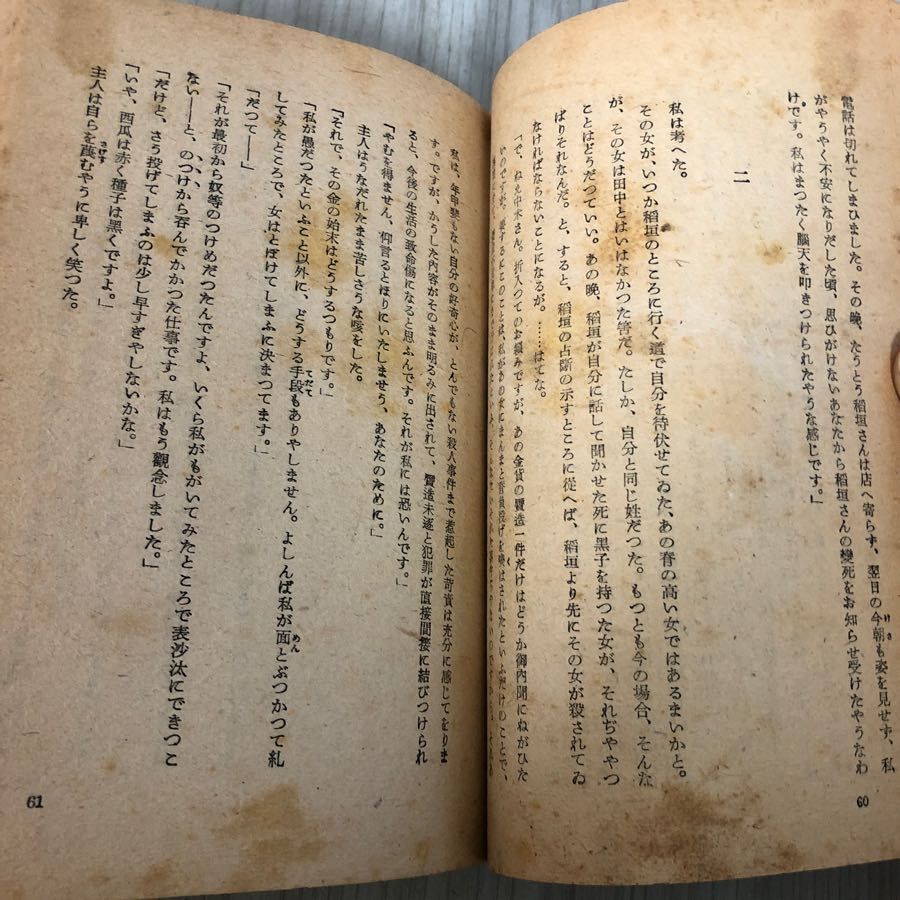 電話は切れてしまひました。その晩、たうとう稲垣さんは店へ寄らず、翌日の今朝も姿を見せず、私
けさ
がやうやく不安になりだした頃、思ひがけないあなたから稲垣さんの變死をお知らせ受けたやうなわ
けです。私はまつたく腦天を叩きつけられたやうな感じです。」
二
私は考へた。
その女が、いつか稲垣のところに行く道で自分を待伏せてゐた、あの脊の高い女ではあるまいかと。
が、その女は田中とはいはなかつた筈だ。たしか、自分と同じ姓だつた。もつとも今の場合、そんな
ことはどうだつていい。あの晩、稲垣が自分に話して聞かせた死に黒子を持つた女が、それぢややつ
ぱりそれなんだ。と、すると、稲垣の占斷の示すところに從へば、稲垣より先にその女が殺されてゐ
なければならないことになるが。……はてな。
「で、ねえ中木さん。折入つてのお頼みですが、あの金貨の贋造一件だけはどうか御内聞にねがひた
いのですが。要するにこのことは、私があの女にまんまと脊負投げを喰はされたといふだけのことで、
く
私は、年甲斐もない自分の好奇心が、とんでもない殺人事件まで惹起した苛責は充分に感じてをりま
す。ですが、かうした内容がそのまま明るみに出されて、贋造未遂と犯罪が直接間接に結びつけられ
ると、今後の生活の致命傷になると思ふんです。それが私には恐いんです。」
「やむを得ません、仰言るとほりにいたしませう、あなたのために。」
主人はうなだれたまま苦しさうな咳をした。
「それで、その金の始末はどうするつもりです。」
「私が愚だつたといふこと以外に、どうする手段もありやしません。よしんば私が面とぶつかつて糺
てだて
めん
してみたところで、女はとぼけてしまふに決まつてます。」
「だつて――」
「それが最初から奴等のつけめだつたんですよ、いくら私がもがいてみたところで表沙汰にできつこ
ない――と、のつけから呑んでかかつた仕事です。私はもう觀念しました。」
「だけど、さう投げてしまふのは少し早すぎやしないかな。」
「いや、西瓜は赤く種子は黒くですよ。」
主人は自らを蔑むやうに卑しく笑つた。
さげす
60
61